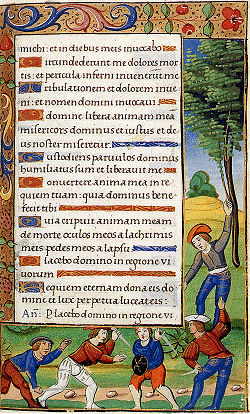 michi: et in diebus meis inuocabo
Circundederunt me dolores mor
tis: et pericula inferni inuenerunt me
Tribulationem et dolorem inue
ni: et nomen domini inuocaui
O domine libera animam mea
misericors dominus et iustus et de
us noster miseretur.
Custodiens paruulos dominus
humiliatus sum et liberauit me
Conuertere anima mea in re
quiem tuam: quia dominus bene
fecit tibi
Quia eripuit animam meam
de morte oculos meos a lachrimis
meis pedes meos a lapsu
Placebo domino in regione vi
uorum
Requiem eternam dona eis do
mine et lux perpetua luceat eis:
An̄: Placebo domino in regione vi